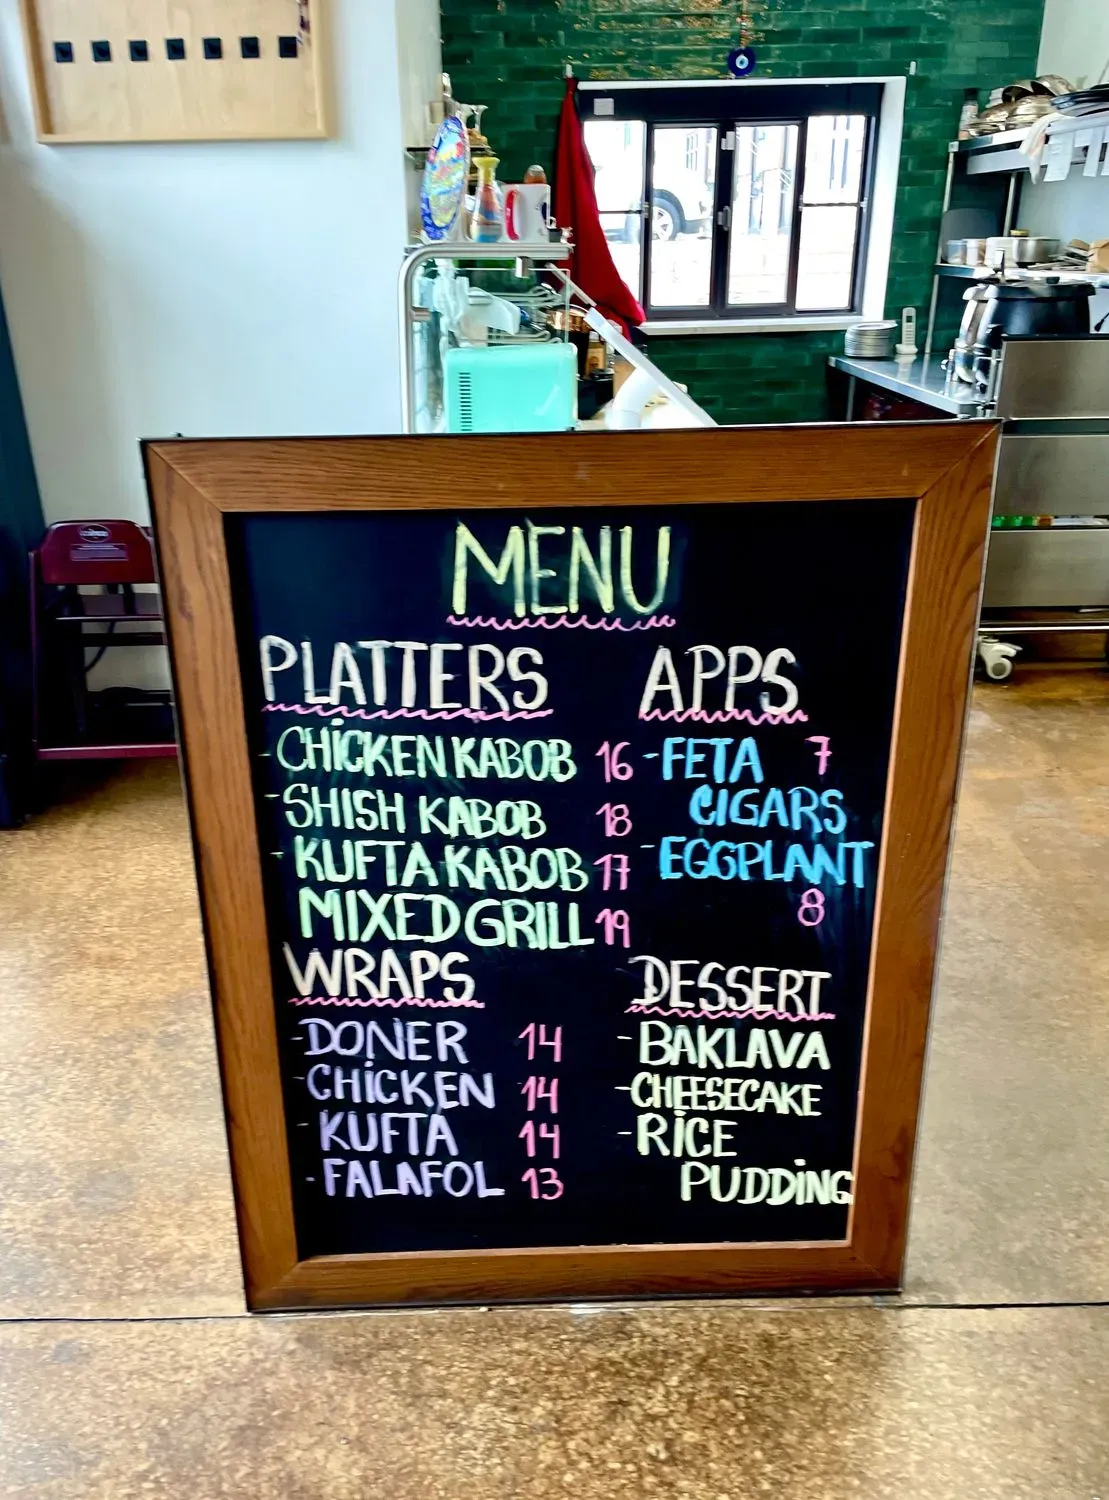 MENU
PLATTERS
- CHICKEN KABOB 16
- SHISH KABOB 18
- KUFTA KABOB 17
MIXED GRILL 19
WRAPS
- DONER 14
- CHICKEN 14
- KUFTA 14
- FALAFOL 13
APPS
- FETA 7
CIGARS
- EGGPLANT
8
DESSERT
- BAKLAVA
- CHEESECAKE
- RICE
PUDDING